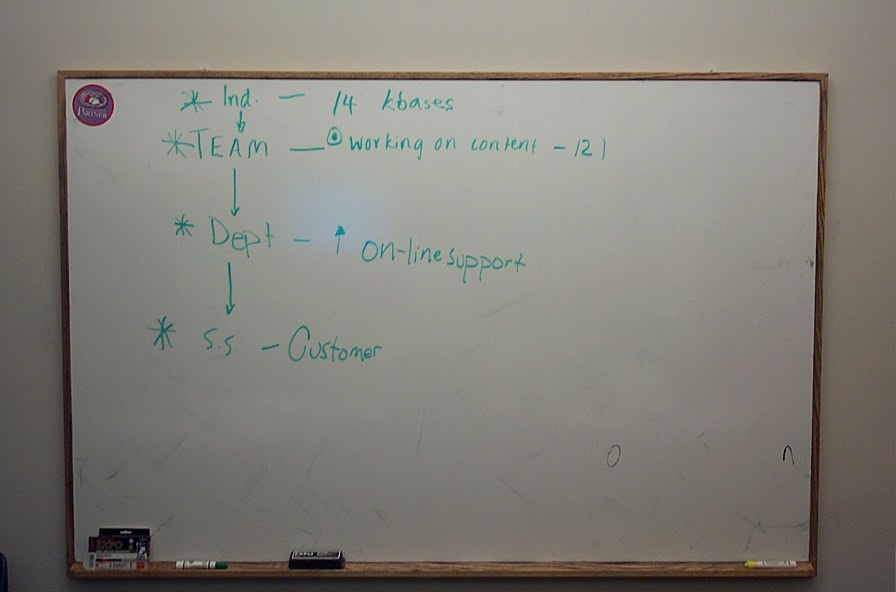 PARTNER
* Ind. — 14 kbases
↓
* TEAM — working on content - 121
↓
* Dept - ↑ on-line support
↓
* S.S - Customer
O
EXPO
EXPO